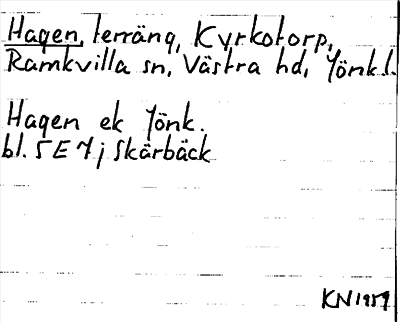 Hagen, terräng, Kyrkotorp,
Ramkvilla sn, Västra hd, Jönk l.
Hagen ek Jönk.
bl. 5E7j Skärbäck
KN 1959